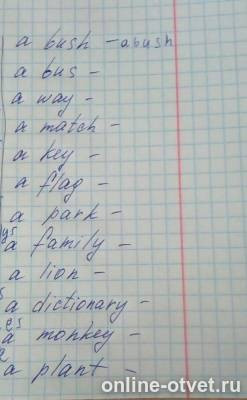 a bush - a bush
a bus -
a way -
a match -
a key -
a flag -
a park -
a family -
a lion -
a dictionary -
a monkey -
a plant -
online-otvet.ru